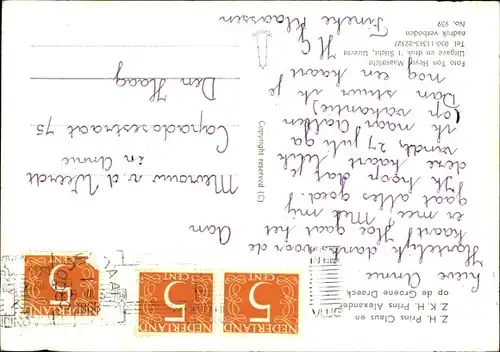 Z. H. Prins Claus en
Z. K. H. Prins Alexander
op de Groene Draeck
Lieve Annie
Hartelijk dank voor de
kaart! Hoe gaat het
er mee Met mij
gaat alles goed!
Ik hoop dat je
deze kaart leuk
vindt, 27 juli ga
ik naar Aalten
(op vakantie)
Dan stuur ik je
nog een kaart
H G
Fineke Klaassen
Foto Ton Heyne Maastricht
Uitgave en druk 't Sticht, Utrecht
Tel 030-11313-22327
nadruk verboden
No. 939
Copyright reserved (C)
Aan
Mevrouw v. d. Weerdt
en Annie
Capadosestraat 75
Den Haag
NEDERLAND
5
CENT
NEDERLAND
5
CENT
NEDERLAND
5
CENT